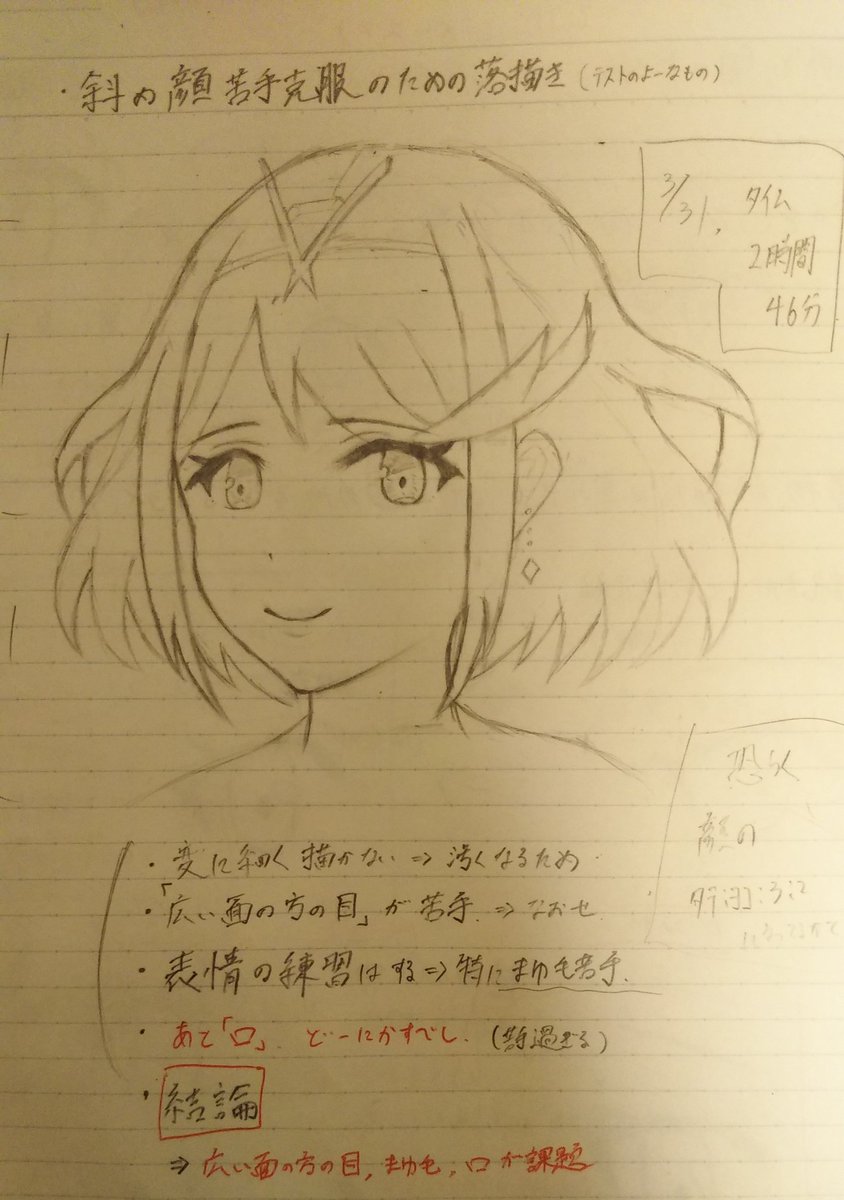 ・斜め顔苦手克服のための落描き(テストのよーなもの)
3/31. タイム
2時間
46分
恐らく
顔の
・変に細く描かない⇒汚くなるため
・「広い面の方の目」が苦手⇒なおせ
・表情の練習はする⇒特にまゆ毛苦手.
・あと「口」どーにかすべし.(苦手過ぎる)
・結論
⇒広い面の方の目,まゆ毛,口が課題